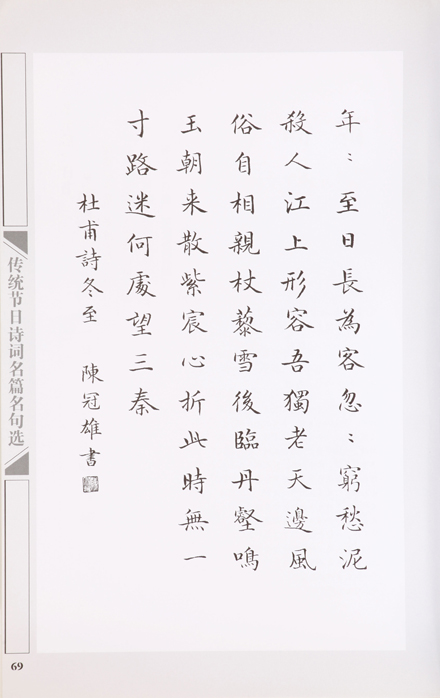 年:至日長為客忽:窮愁泥
殺人江上形容吾獨老天邊風
俗自相親杖藜雪後臨丹壑鳴
玉朝来散紫宸心折此時無一
寸路迷何處望三秦
杜甫詩冬至 陳冠雄書
传统节日诗词名篇名句选
69